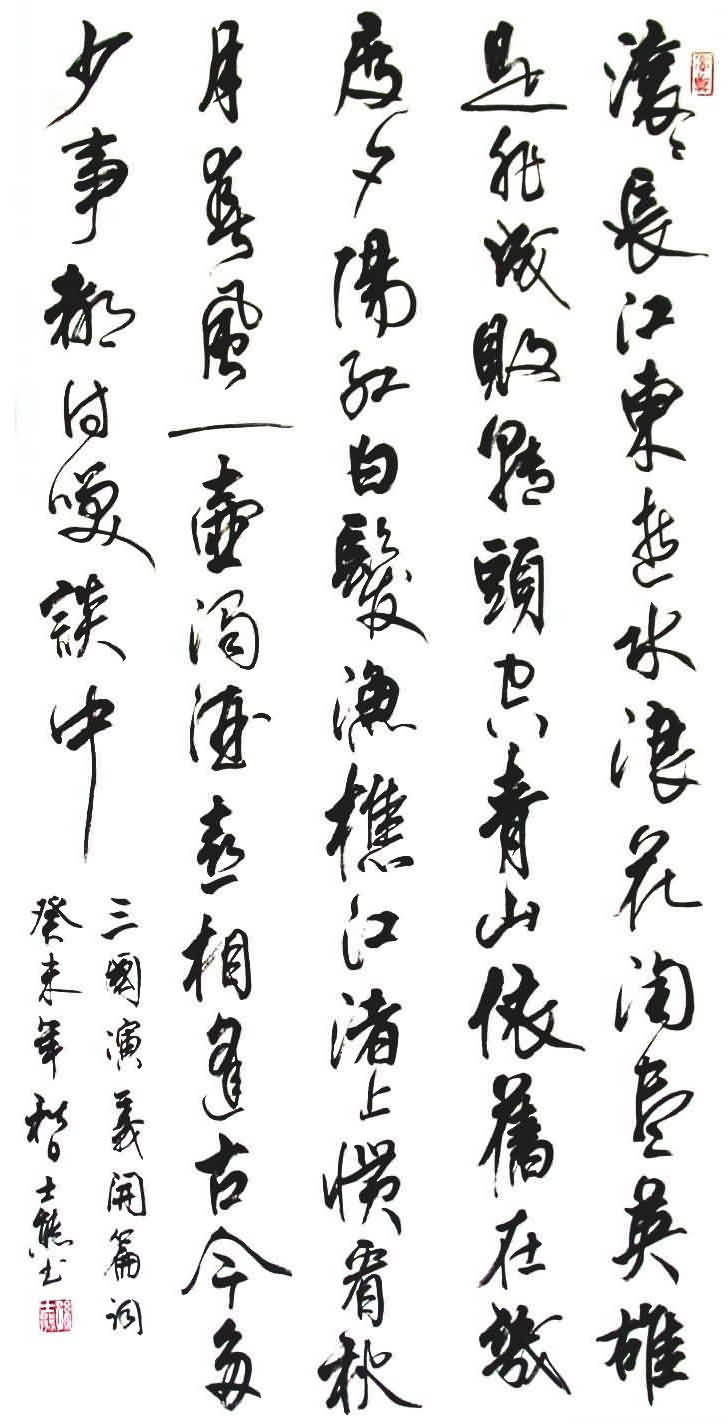 滾〻長江東逝水浪花淘盡英雄
是非成敗轉頭空青山依舊在幾
度夕陽紅白髮漁樵江渚上慣看秋
月春風一壺濁酒喜相逢古今多
少事都付笑談中
三國演義開篇詞
癸未年秋日士熊书